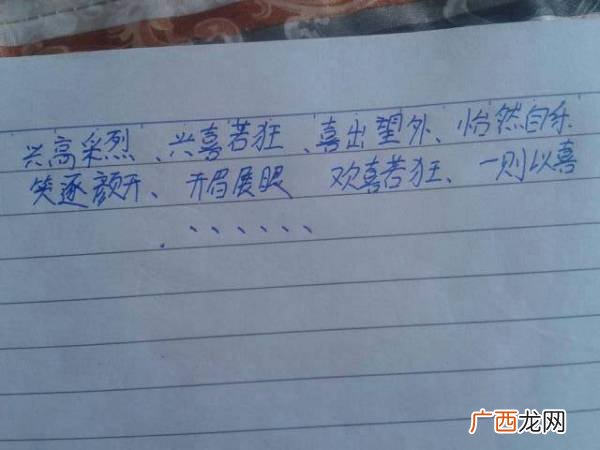 兴高采烈、兴喜若狂、喜出望外、怡然自乐
笑逐颜开、开眉展眼 欢喜若狂、一则以喜
.、、、、、、
广西龙网